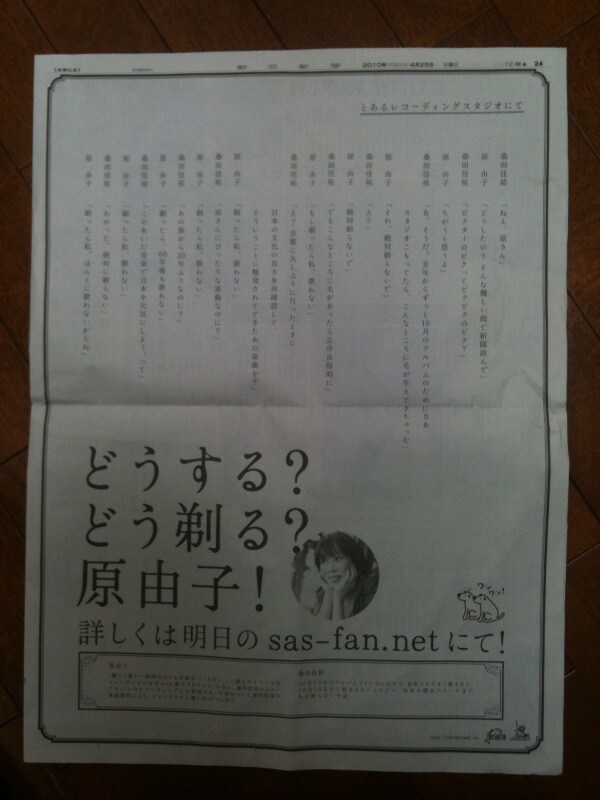 2010年 4月25日 日曜日
24
とあるレコーディングスタジオにて
桑田佳祐 「ねぇ、原さん」
原 由子 「どうしたの？そんな難しい顔で新聞読んで」
桑田佳祐 「ビクターのビクってビクビクのビク？」
原 由子 「ちがうと思うよ」
桑田佳祐 「あ、そうだ、去年からずっと10月のアルバムのためにさあ
スタジオこもってたら、こんなところに毛が生えてきちゃった」
原 由子 「それ、絶対剃らないでて」
桑田佳祐 「え？」
原 由子 「絶対剃らないで」
桑田佳祐 「でもこんなところに毛があったら公序良俗的に」
原 由子 「もし剃ったら私、歌わない」
桑田佳祐 「え？京都に久しぶりに行ったときに
日本の文化の良さを再確認して
そういうことに触発されてできたあの楽曲を？」
原 由子 「剃ったら私、歌わない」
桑田佳祐 「原さんにぴったりな楽曲なのに？」
原 由子 「剃ったら私、歌わない」
桑田佳祐 「あの曲から30年ぶりなのに？」
原 由子 「剃ったら、66年後も歌わない」
桑田佳祐 「このあいだ音楽で日本を元気にしようって」
原 由子 「剃ったら私、歌わない」
桑田佳祐 「わかった、絶対に剃らない」
原 由子 「剃ったら私、ほんとに歌わないからね」
どうする？
どう剃る？
原由子！
ワンワン！
詳しくは明日の sas-fan.net にて！
原由子
桑田佳祐